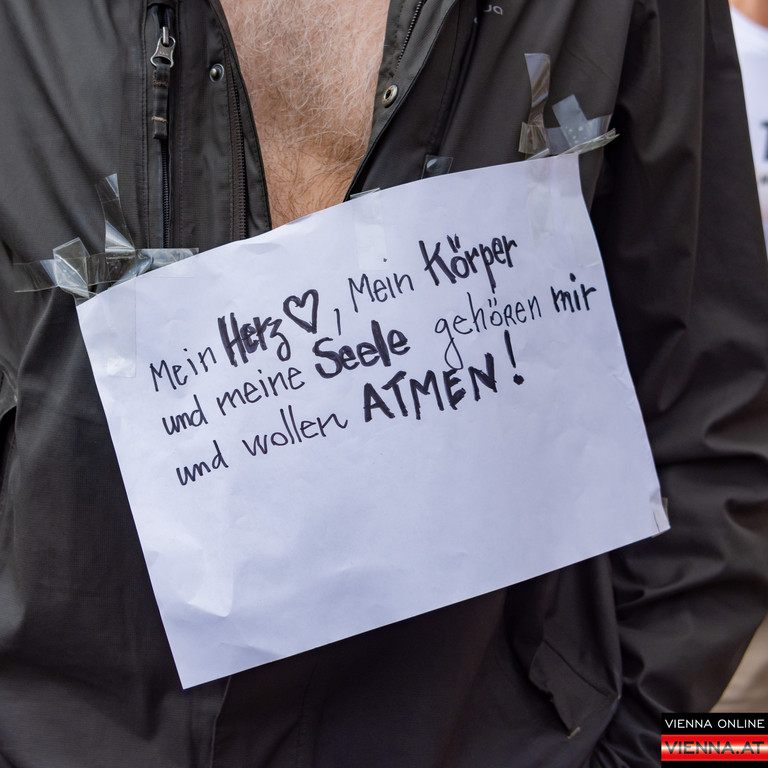 Mein Herz ♡, Mein Körper
und meine Seele gehören mir
und wollen ATMEN!
VIENNA ONLINE
VIENNA.AT